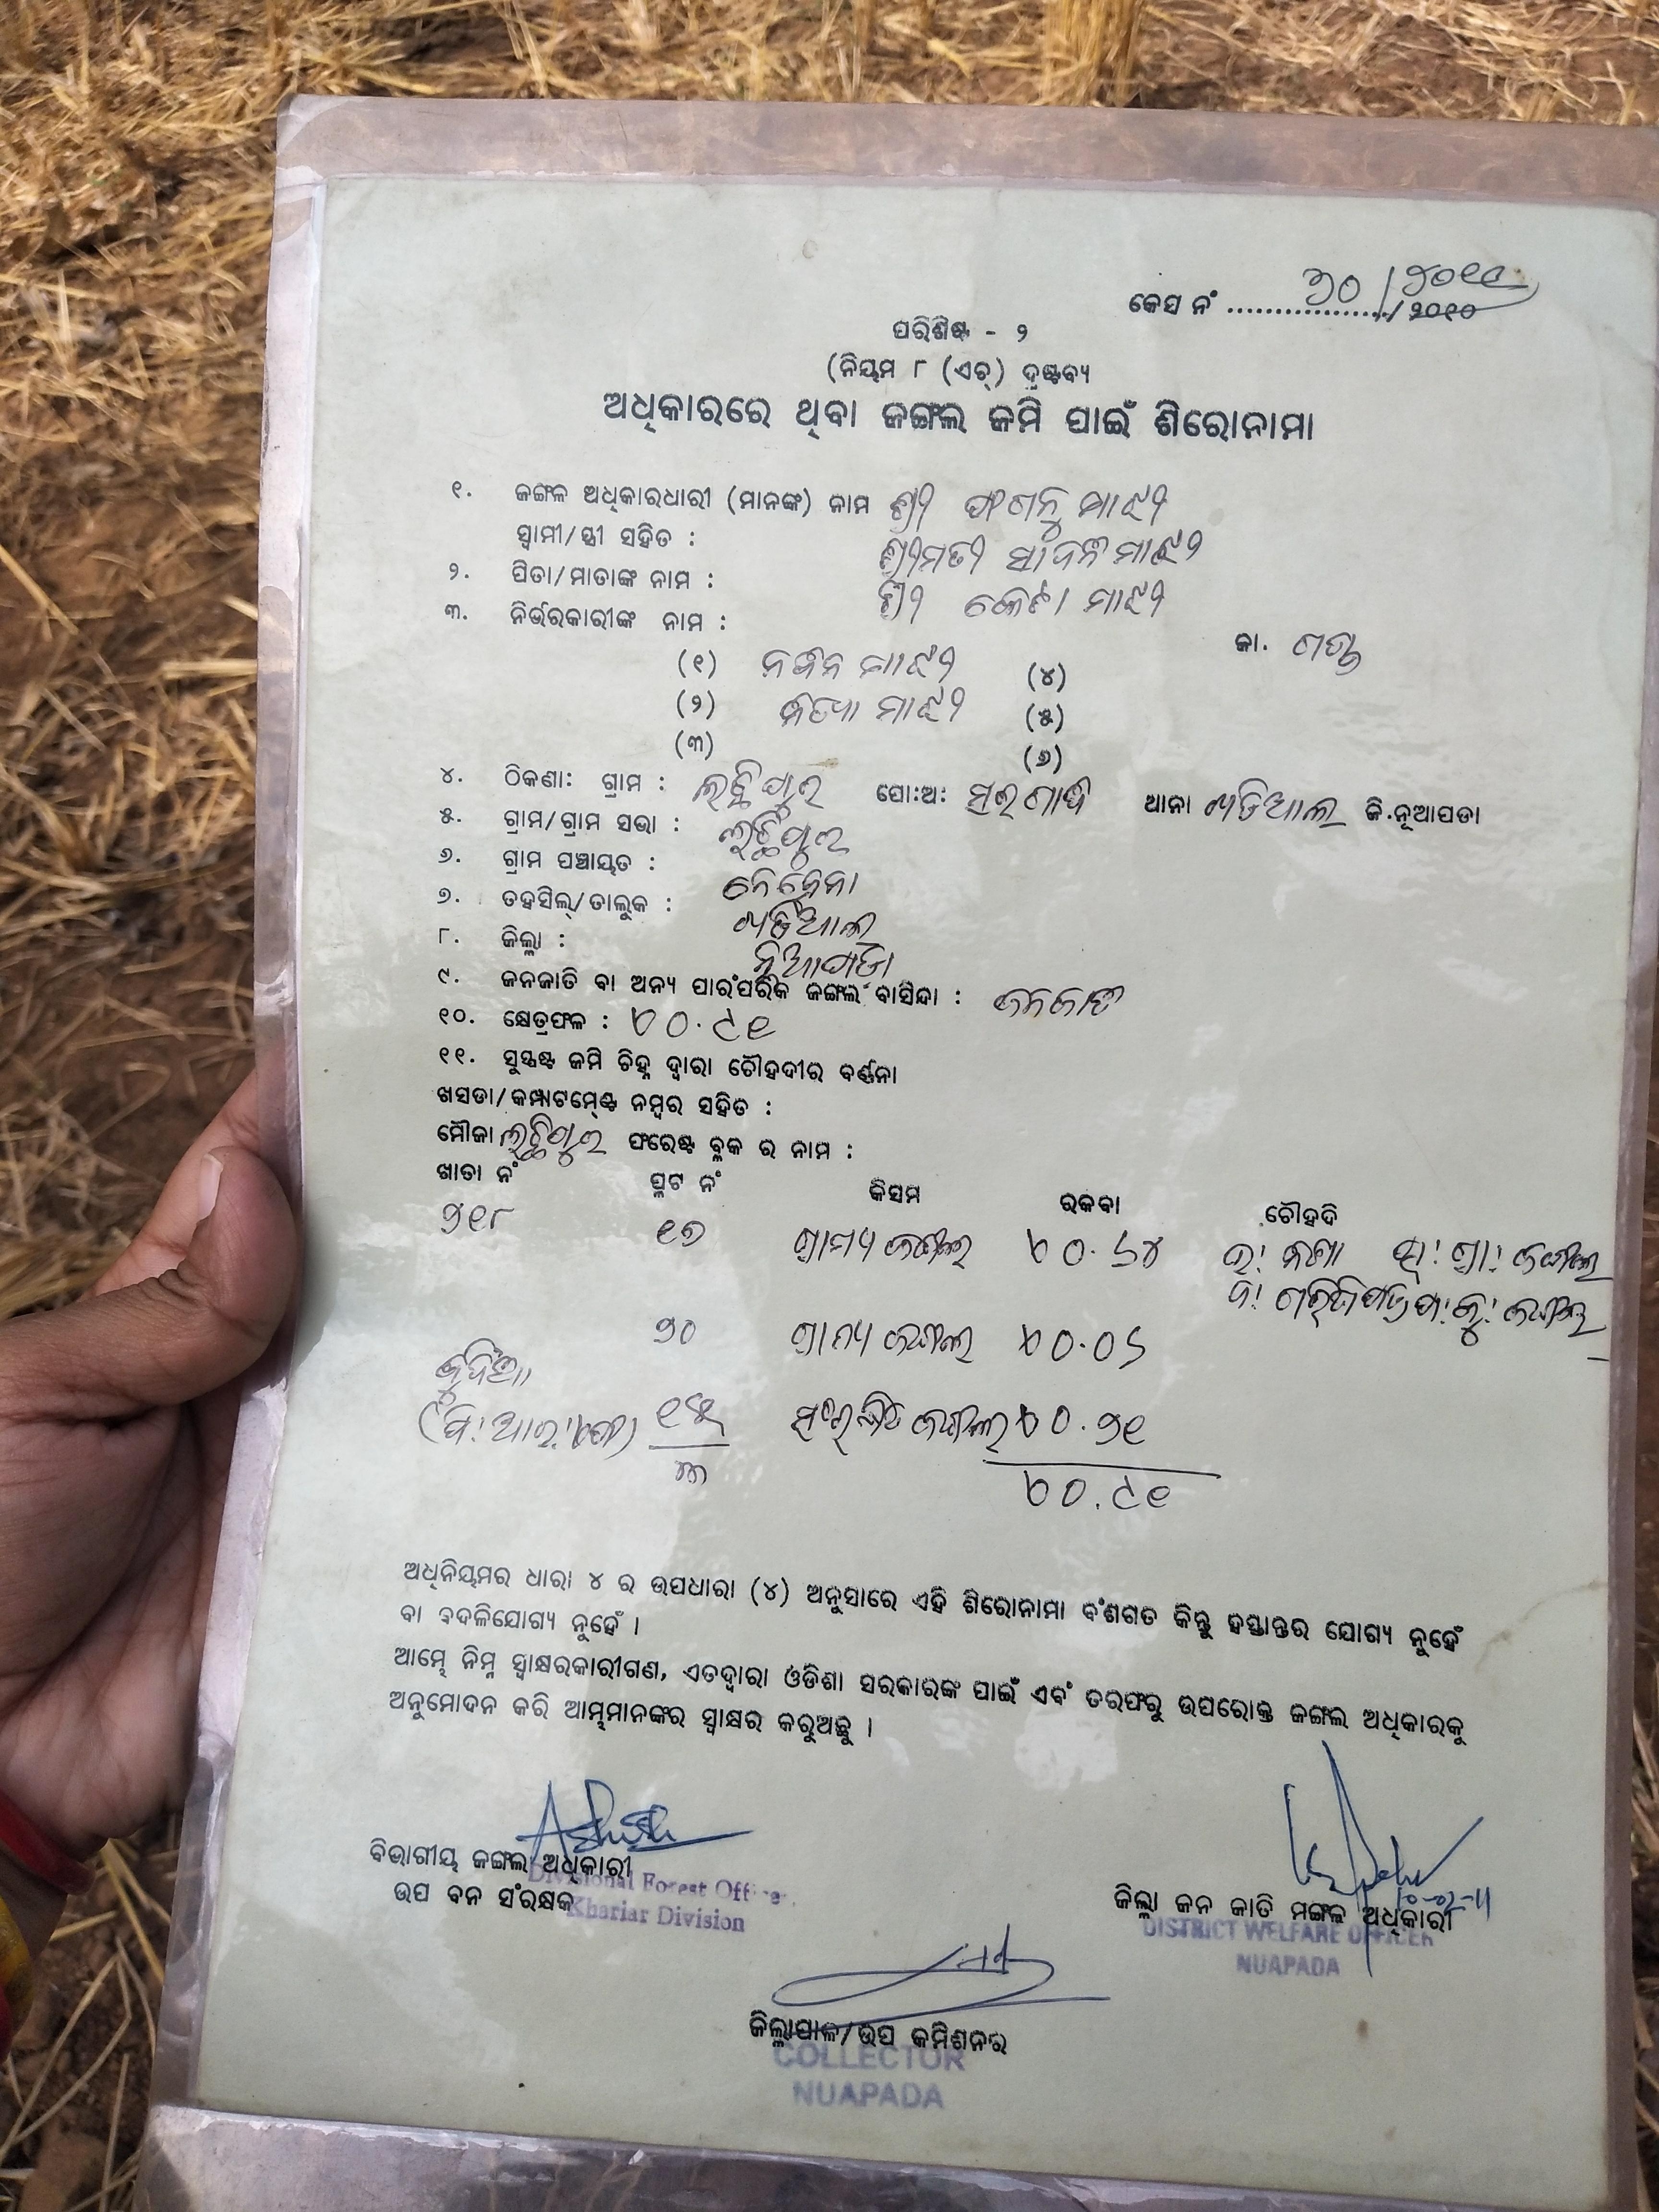 କେସ ନଂ ................../ ୨୦୧୦
ପରିଶିଷ୍ଟ - ୨
(ନିୟମ ୮ (ଏଚ୍) ଦ୍ରଷ୍ଟବ୍ୟ
ଅଧିକାରରେ ଥିବା ଜଙ୍ଗଲ ଜମି ପାଇଁ ଶିରୋନାମା
୧. ଜଙ୍ଗଲ ଅଧିକାରଧାରୀ (ମାନଙ୍କ) ନାମ ଶ୍ରୀ ମାଝୀ
ସ୍ୱାମୀ/ସ୍ତ୍ରୀ ସହିତ : ଶ୍ରୀମତୀ ମାଝୀ
୨. ପିତା/ମାତାଙ୍କ ନାମ : ଶ୍ରୀ ମାଝୀ
୩. ନିର୍ଭରକାରୀଙ୍କ ନାମ : ଜା. ଗଣ୍ଡ
(୧) ମାଝୀ (୪)
(୨) ମାଝୀ (୫)
(୩) (୬)
୪. ଠିକଣା: ଗ୍ରାମ : ଲଛିପୁର ପୋ:ଅ: ଥାନା ଖଡିଆଲ ଜି.ନୂଆପଡା
୫. ଗ୍ରାମ/ଗ୍ରାମ ସଭା : ଲଛିପୁର
୬. ଗ୍ରାମ ପଞ୍ଚାୟତ :
୭. ତହସିଲ୍/ତାଲୁକ : ଖଡିଆଲ
୮. ଜିଲ୍ଲା : ନୂଆପଡା
୯. ଜନଜାତି ବା ଅନ୍ୟ ପାରଂପରିକ ଜଙ୍ଗଲ ବାସିନ୍ଦା : ଜନଜାତି
୧୦. କ୍ଷେତ୍ରଫଳ : ୦.୯୧
୧୧. ସୁସ୍ପଷ୍ଟ ଜମି ଚିହ୍ନ ଦ୍ୱାରା ଚୌହଦୀର ବର୍ଣ୍ଣନା
ଖସଡା/କମ୍ପାଟମେଣ୍ଟ ନମ୍ବର ସହିତ :
ମୌଜା ଲଛିପୁର ଫରେଷ୍ଟ ବ୍ଲକ ର ନାମ :
ଖାତା ନଂ ପ୍ଲଟ ନଂ କିସମ ରକବା ଚୌହଦି
୨୧୮ ୧୭ ଗ୍ରାମ୍ୟ ଜଙ୍ଗଲ ୦.୬୪ ଗ୍ରା: ଜଙ୍ଗଲ
୨୦ ଗ୍ରାମ୍ୟ ଜଙ୍ଗଲ ୦.୦୬
ସଂରକ୍ଷିତ ଜଙ୍ଗଲ ୦.୨୧
୦.୯୧
ଅଧିନିୟମର ଧାରା ୪ ର ଉପଧାରା (୪) ଅନୁସାରେ ଏହି ଶିରୋନାମା ବଂଶଗତ କିନ୍ତୁ ହସ୍ତାନ୍ତର ଯୋଗ୍ୟ ନୁହେଁ
ବା ବଦଳିଯୋଗ୍ୟ ନୁହେଁ ।
ଆମ୍ଭେ ନିମ୍ନ ସ୍ୱାକ୍ଷରକାରୀଗଣ, ଏତଦ୍ଦ୍ୱାରା ଓଡିଶା ସରକାରଙ୍କ ପାଇଁ ଏବଂ ତରଫରୁ ଉପରୋକ୍ତ ଜଙ୍ଗଲ ଅଧିକାରକୁ
ଅନୁମୋଦନ କରି ଆମ୍ଭମାନଙ୍କର ସ୍ୱାକ୍ଷର କରୁଅଛୁ ।
ବିଭାଗୀୟ ଜଙ୍ଗଲ ଅଧିକାରୀ
Divisional Forest Officer
ଉପ ବନ ସଂରକ୍ଷକ
Khariar Division
ଜିଲ୍ଲା ଜନ ଜାତି ମଙ୍ଗଳ ଅଧିକାରୀ
DISTRICT WELFARE OFFICER
NUAPADA
ଜିଲ୍ଲାପାଳ/ଉପ କମିଶନର
COLLECTOR
NUAPADA